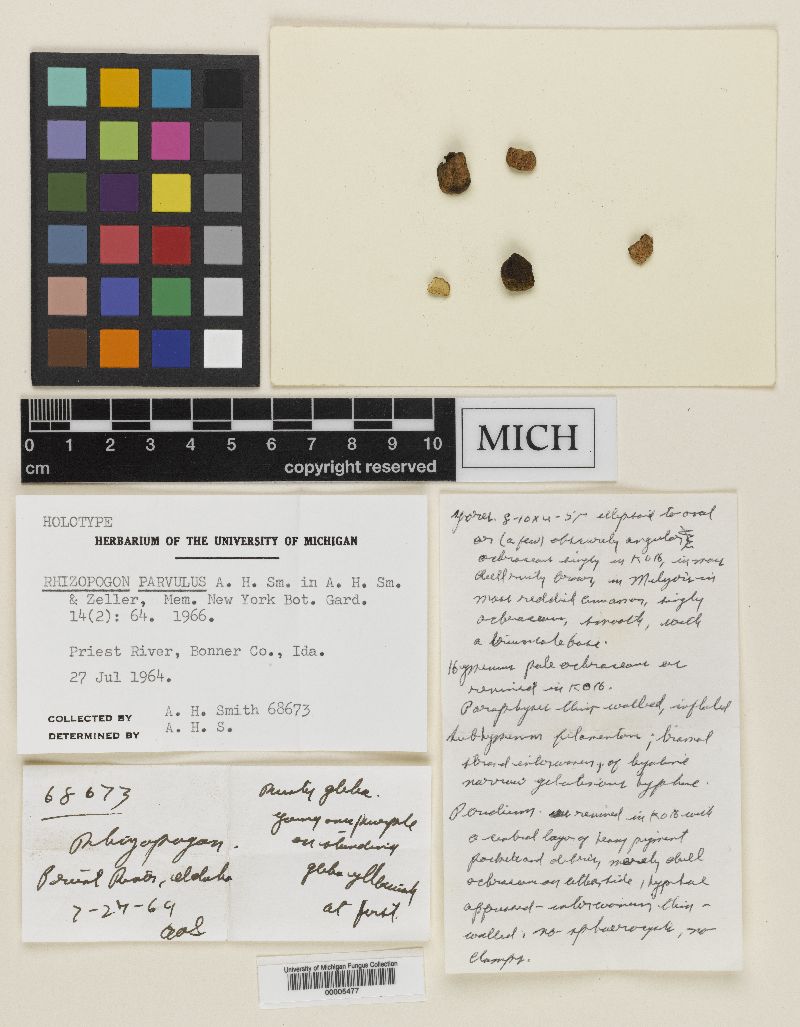 0 1 2 3 4 5 6 7 8 9 10
cm
copyright reserved
MICH
HOLOTYPE
HERBARIUM OF THE UNIVERSITY OF MICHIGAN
RHIZOPOGON PARVULUS A. H. Sm. in A. H. Sm.
& Zeller, Mem. New York Bot. Gard.
14(2): 64. 1966.
Priest River, Bonner Co., Ida.
27 Jul 1964.
COLLECTED BY A. H. Smith 68673
DETERMINED BY A. H. S.
68673
Rhizopogon.
Priest River, Idaho
7-27-64
AHS
Rusty gleba.
young
on standing
gleba yellowish
at first.
Spores 8-10x4-5 ellipsoid to oval
or (a few) obscurely angular
ochraceous singly in KOH, in mass
dull rusty brown in Melzer's in
mass reddish cinnamon, singly
ochraceous, smooth, with
a truncate base.
Hymenium pale ochraceous as
revived in KOH.
Paraphyses thin-walled, inflated
Subhymenium filamentous; tramal
strand interwoven, of hyaline
narrow gelatinous hyphae.
Peridium revived in KOH with
a central layer of heavy pigment
pockets and debris, merely dull
ochraceous on either side, hyphae
appressed-interwoven, thin-
walled, no sphaerocysts, no
clamps.
University of Michigan Fungus Collection
00005477